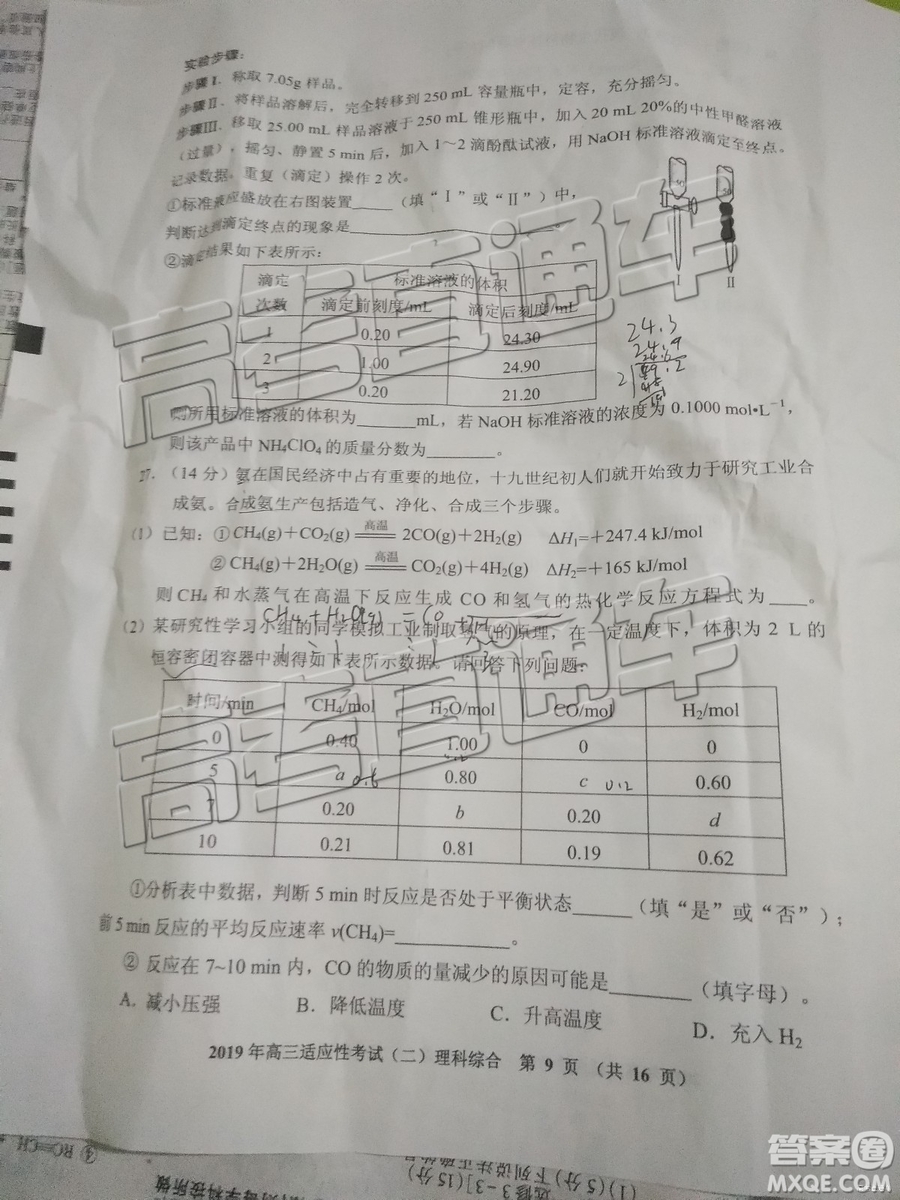 实验步骤：
步骤Ⅰ. 称取 7.05g 样品。
步骤Ⅱ. 将样品溶解后，完全转移到 250 mL 容量瓶中，定容，充分摇匀。
步骤Ⅲ. 移取 25.00 mL 样品溶液于 250 mL 锥形瓶中，加入 20 mL 20%的中性甲醛溶液
（过量），摇匀、静置 5 min 后，加入 1～2 滴酚酞试液，用 NaOH 标准溶液滴定至终点。
记录数据，重复（滴定）操作 2 次。
①标准液应盛放在右图装置_____（填“Ⅰ”或“Ⅱ”）中，
判断达到滴定终点的现象是
②滴定结果如下表所示：
Ⅰ Ⅱ
滴定次数 标准溶液的体积
滴定前刻度/mL 滴定后刻度/mL
1 0.20 24.30
2 1.00 24.90
3 0.20 21.20
24.3
则所用标准溶液的体积为_______mL，若 NaOH 标准溶液的浓度为 0.1000 mol•L⁻¹，
则该产品中 NH₄ClO₄ 的质量分数为________。
27.（14 分）氨在国民经济中占有重要的地位，十九世纪初人们就开始致力于研究工业合
成氨。合成氨生产包括造气、净化、合成三个步骤。
(1) 已知：①CH₄(g)＋CO₂(g) 高温 2CO(g)＋2H₂(g) ΔH₁=＋247.4 kJ/mol
② CH₄(g)＋2H₂O(g) 高温 CO₂(g)＋4H₂(g) ΔH₂=＋165 kJ/mol
则 CH₄ 和水蒸气在高温下反应生成 CO 和氢气的热化学反应方程式为 ____。
CH₄ + H₂O(g) = CO
(2) 某研究性学习小组的同学模拟工业制取氢气的原理，在一定温度下，体积为 2 L 的
恒容密闭容器中测得如下表所示数据。请回答下列问题：
时间/min CH₄/mol H₂O/mol CO/mol H₂/mol
0 0.40 1.00 0 0
5 a 0.80 c 0.2 0.60
7 0.20 b 0.20 d
10 0.21 0.81 0.19 0.62
①分析表中数据，判断 5 min 时反应是否处于平衡状态______（填“是”或“否”）；
前 5 min 反应的平均反应速率 v(CH₄)=__________。
② 反应在 7~10 min 内，CO 的物质的量减少的原因可能是________（填字母）。
A. 减小压强 B. 降低温度 C. 升高温度 D. 充入 H₂
2019 年高三适应性考试（二）理科综合 第 9 页 （共 16 页）
高考直通车
高考直通车
④ RC=CH
选修 3－3］(15 分)
(1)(5 分)下列说法正确的是
答案圈
MXQE.COM